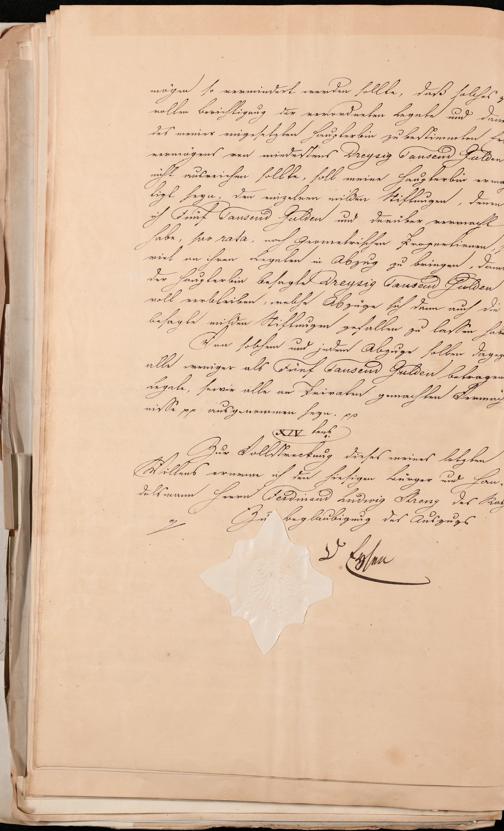 mögen so vermindert werden sollte, daß solches z
vollen Berichtigung der verordneten Legate und dann
des meiner eingesetzten Haupterbin zubestimmten
vermögens von mindestens Dreysig Tausend Gulden
nicht ausreichen sollte, soll meine Haupterbin ermäch
tigt seyn, den einzelnen milden Stiftungen, denen
ich Fünf Tausend Gulden und darüber vermacht
habe, pro rata, nach geometrischen Proportionen
viel an ihren Legaten in Abzug zu bringen, damit
der Haupterbin besagte Dreysig Tausend Gulden
voll verbleiben, welche Abzüge sich dann auch die
besagte milden Stiftungen gefallen zu lassen haben
Von solchem und jedem Abzuge sollen dagegen
alle weniger als Fünf Tausend Gulden betragen
Legate, sowie alle an Privaten gemachten Vermächt
nisse pp ausgenommen seyn. pp
XIV tens
Zur Vollstreckung dieses meines letzten
Willens ernenne ich den hiesigen Bürger und Han-
delsmann Herrn Ferdinand Ludwig des
Zur Beglaubigung des Auszugs